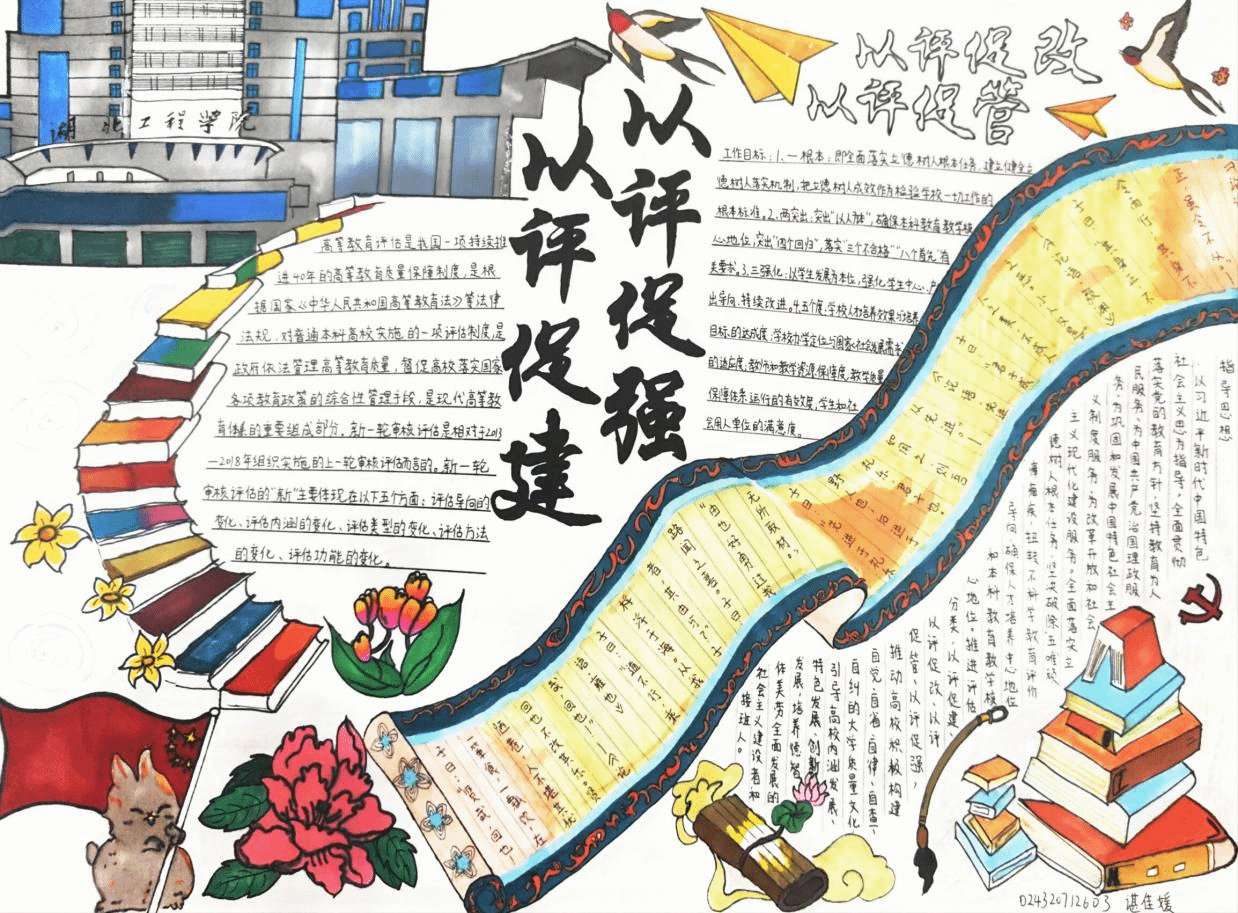 湖北工程学院
以评促改
以评促管
以评促强
以评促建
高等教育评估是我国一项持续推
进40年的高等教育质量保障制度,是根
据国家《中华人民共和国高等教育法》等法律
法规,对普通本科高校实施的一项评估制度,是
政府依法管理高等教育质量,督促高校落实国家
各项教育政策的综合性管理手段,是现代高等教
育体系的重要组成部分。新一轮审核评估是相对于2013
—2018年组织实施的上一轮审核评估而言的。新一轮
审核评估的"新"主要体现在以下五个方面:评估导向的
变化、评估内涵的变化、评估类型的变化、评估方法
的变化、评估功能的变化。
工作目标:1.一根本:即全面落实立德树人根本任务,建立健全立
德树人落实机制,把立德树人成效作为检验学校一切工作的
根本标准。2.两突出:突出"以人为本",确保本科教育教学核
心地位,突出"四个回归",落实"三个不合格""八个首先"有
关要求。3.三强化:以学生发展为本位,强化学生中心、产
出导向、持续改进。4.五个度:学校人才培养效果与培养
目标的达成度;学校办学定位与国家社会发展需求
的适应度;教师和教学资源保障度;教学质量
保障体系运行的有效度;学生和社
会用人单位的满意度。
指导思想
以习近平新时代中国特色
社会主义思为指导,全面贯彻
落实党的教育方针,坚持教育为人
民服务、为中国共产党治国理政服
务、为巩固和发展中国特色社会主
义制度服务、为改革开放和社会
主义现代化建设服务。全面落实立
德树人根本任务,坚决破除五唯顽
瘴痼疾,扭转不科学教育评价
导向,确保人才培养中心地位
和本科教育教学核
心地位。推进评估
分类,以评促建、
以评促改、以评
促管、以评促强,
推动高校积极构建
自觉、自省、自律、自查、
自纠的大学质量文化
引导高校内涵发展、
特色发展、创新
发展,培养德智
体美劳全面发展的
社会主义建设者和
接班人。
正,虽令不从。"
"君子成
人之美,不成人
如用之,则吾
从先进。"
子曰:"先进于礼
野人也,后进于
礼乐,君子也。
"由也好勇过我
无所取材。"
路闻之喜。子曰
者,其由与?"子
桴浮于海。从我
子曰:"道不行,乘
子曰:"贤哉,回也!
一箪食,一瓢饮,在
陋巷,人不堪其忧
回也不改其乐。贤
哉,回也!"
024320712603 谌佳媛